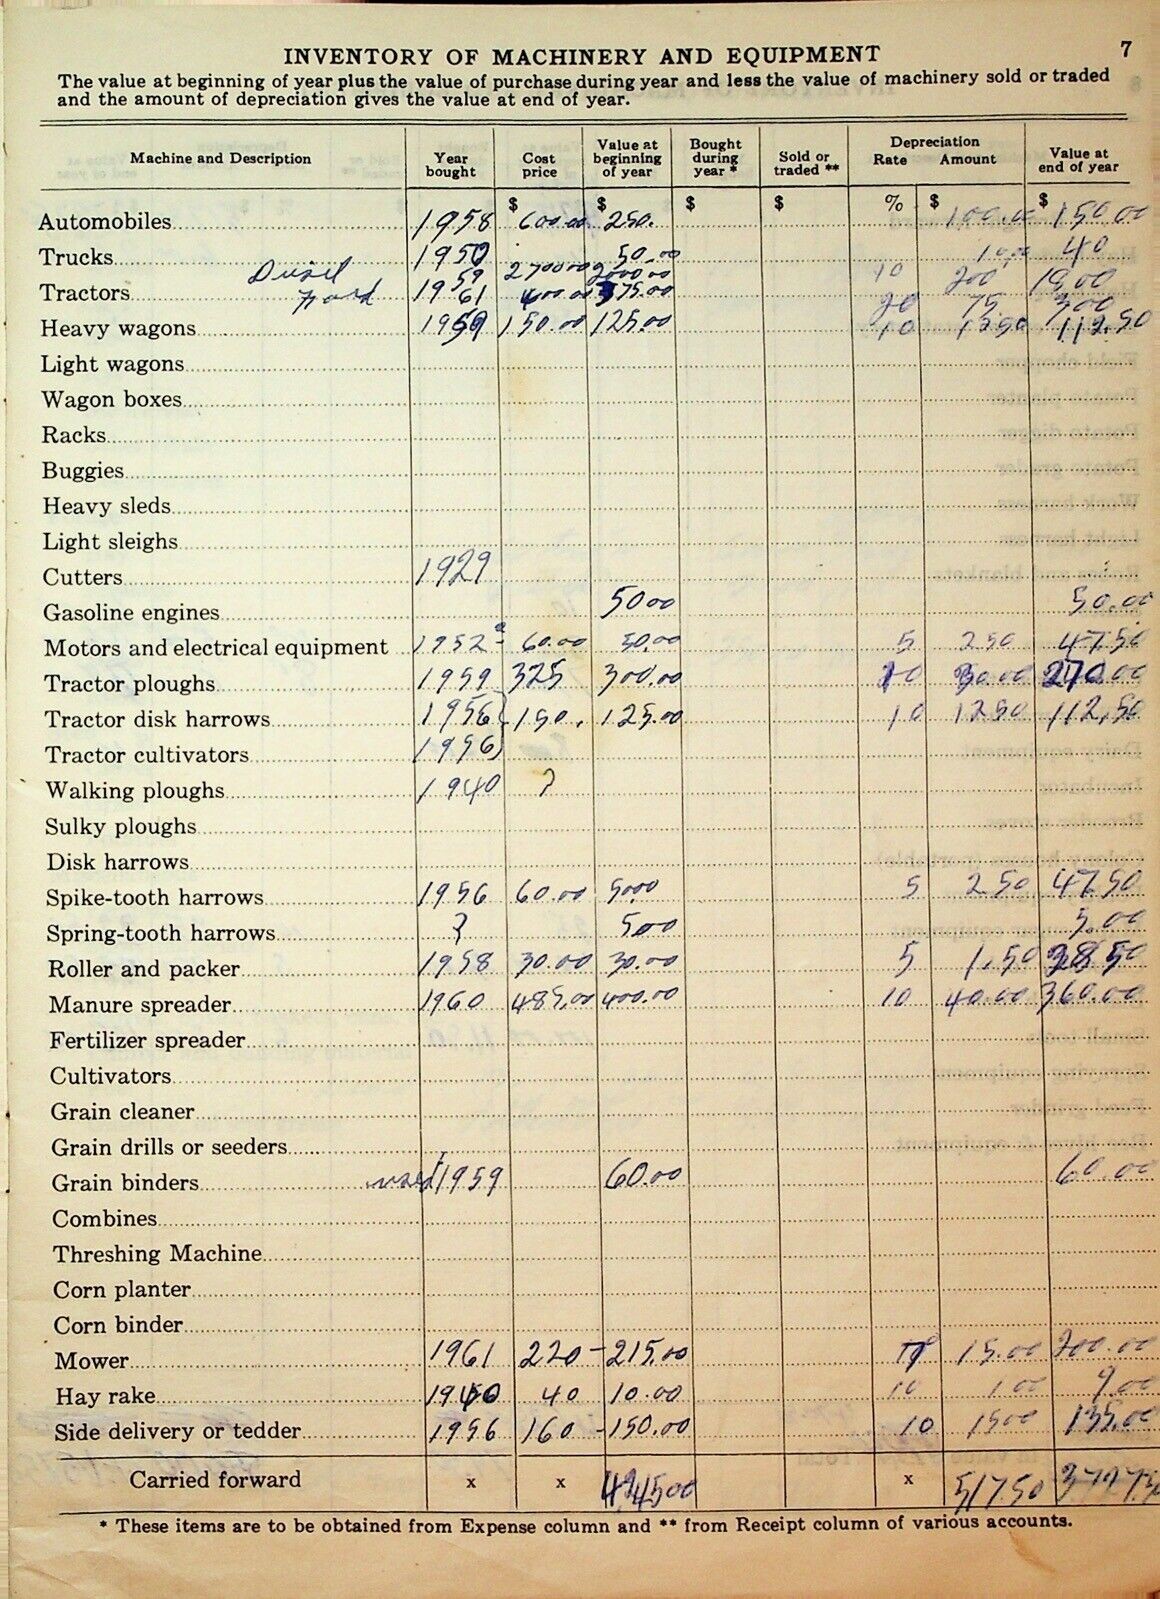 7
INVENTORY OF MACHINERY AND EQUIPMENT
The value at beginning of year plus the value of purchase during year and less the value of machinery sold or traded
and the amount of depreciation gives the value at end of year.
Machine and Description Year bought Cost price Value at beginning of year Bought during year * Sold or traded ** Depreciation Rate Amount Value at end of year
$ $ $ $ % $ $
Automobiles 1958 600.00 250. 100.00 150.00
Trucks 1950 50.00 10.00 40
Diesel 59 2700.00 2000.00 10 200
Tractors Ford 1961 400.00 375.00 20 75 300
Heavy wagons 1959 150.00 125.00 10 1250 112.50
Light wagons
Wagon boxes
Racks
Buggies
Heavy sleds
Light sleighs
Cutters 1929
Gasoline engines 5000 50.00
Motors and electrical equipment 1952 60.00 50.00 5 250 47.50
Tractor ploughs 1959 325 300.00 10 30.00 270.00
Tractor disk harrows 1956 150. 125.00 10 1250 112.50
Tractor cultivators 1956
Walking ploughs 1940 ?
Sulky ploughs
Disk harrows
Spike-tooth harrows 1956 60.00 5000 5 250 47.50
Spring-tooth harrows ? 500 5.00
Roller and packer 1958 30.00 30.00 5 1.50 28.50
Manure spreader 1960 485.00 400.00 10 40.00 360.00
Fertilizer spreader
Cultivators
Grain cleaner
Grain drills or seeders
Grain binders used 1959 60.00 60.00
Combines
Threshing Machine
Corn planter
Corn binder
Mower 1961 220 - 215.00 15.00 200.00
Hay rake 40 10.00 10 1 00 9.00
Side delivery or tedder 1956 160 - 150.00 10 1500 135.00
Carried forward x x x 517.50
* These items are to be obtained from Expense column and ** from Receipt column of various accounts.